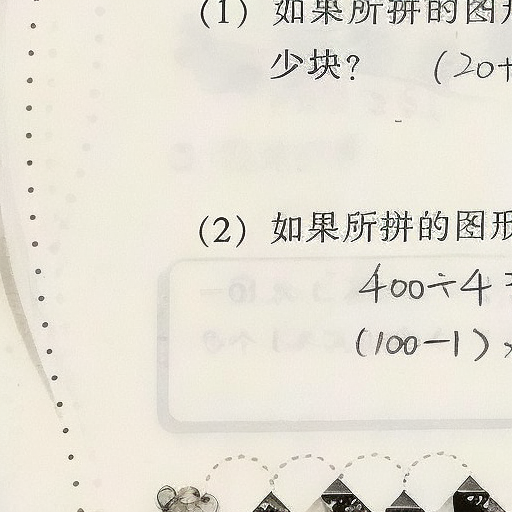 (1) 如果所拼的图形
少块? (20+
(2) 如果所拼的图形
400÷4
(100-1)